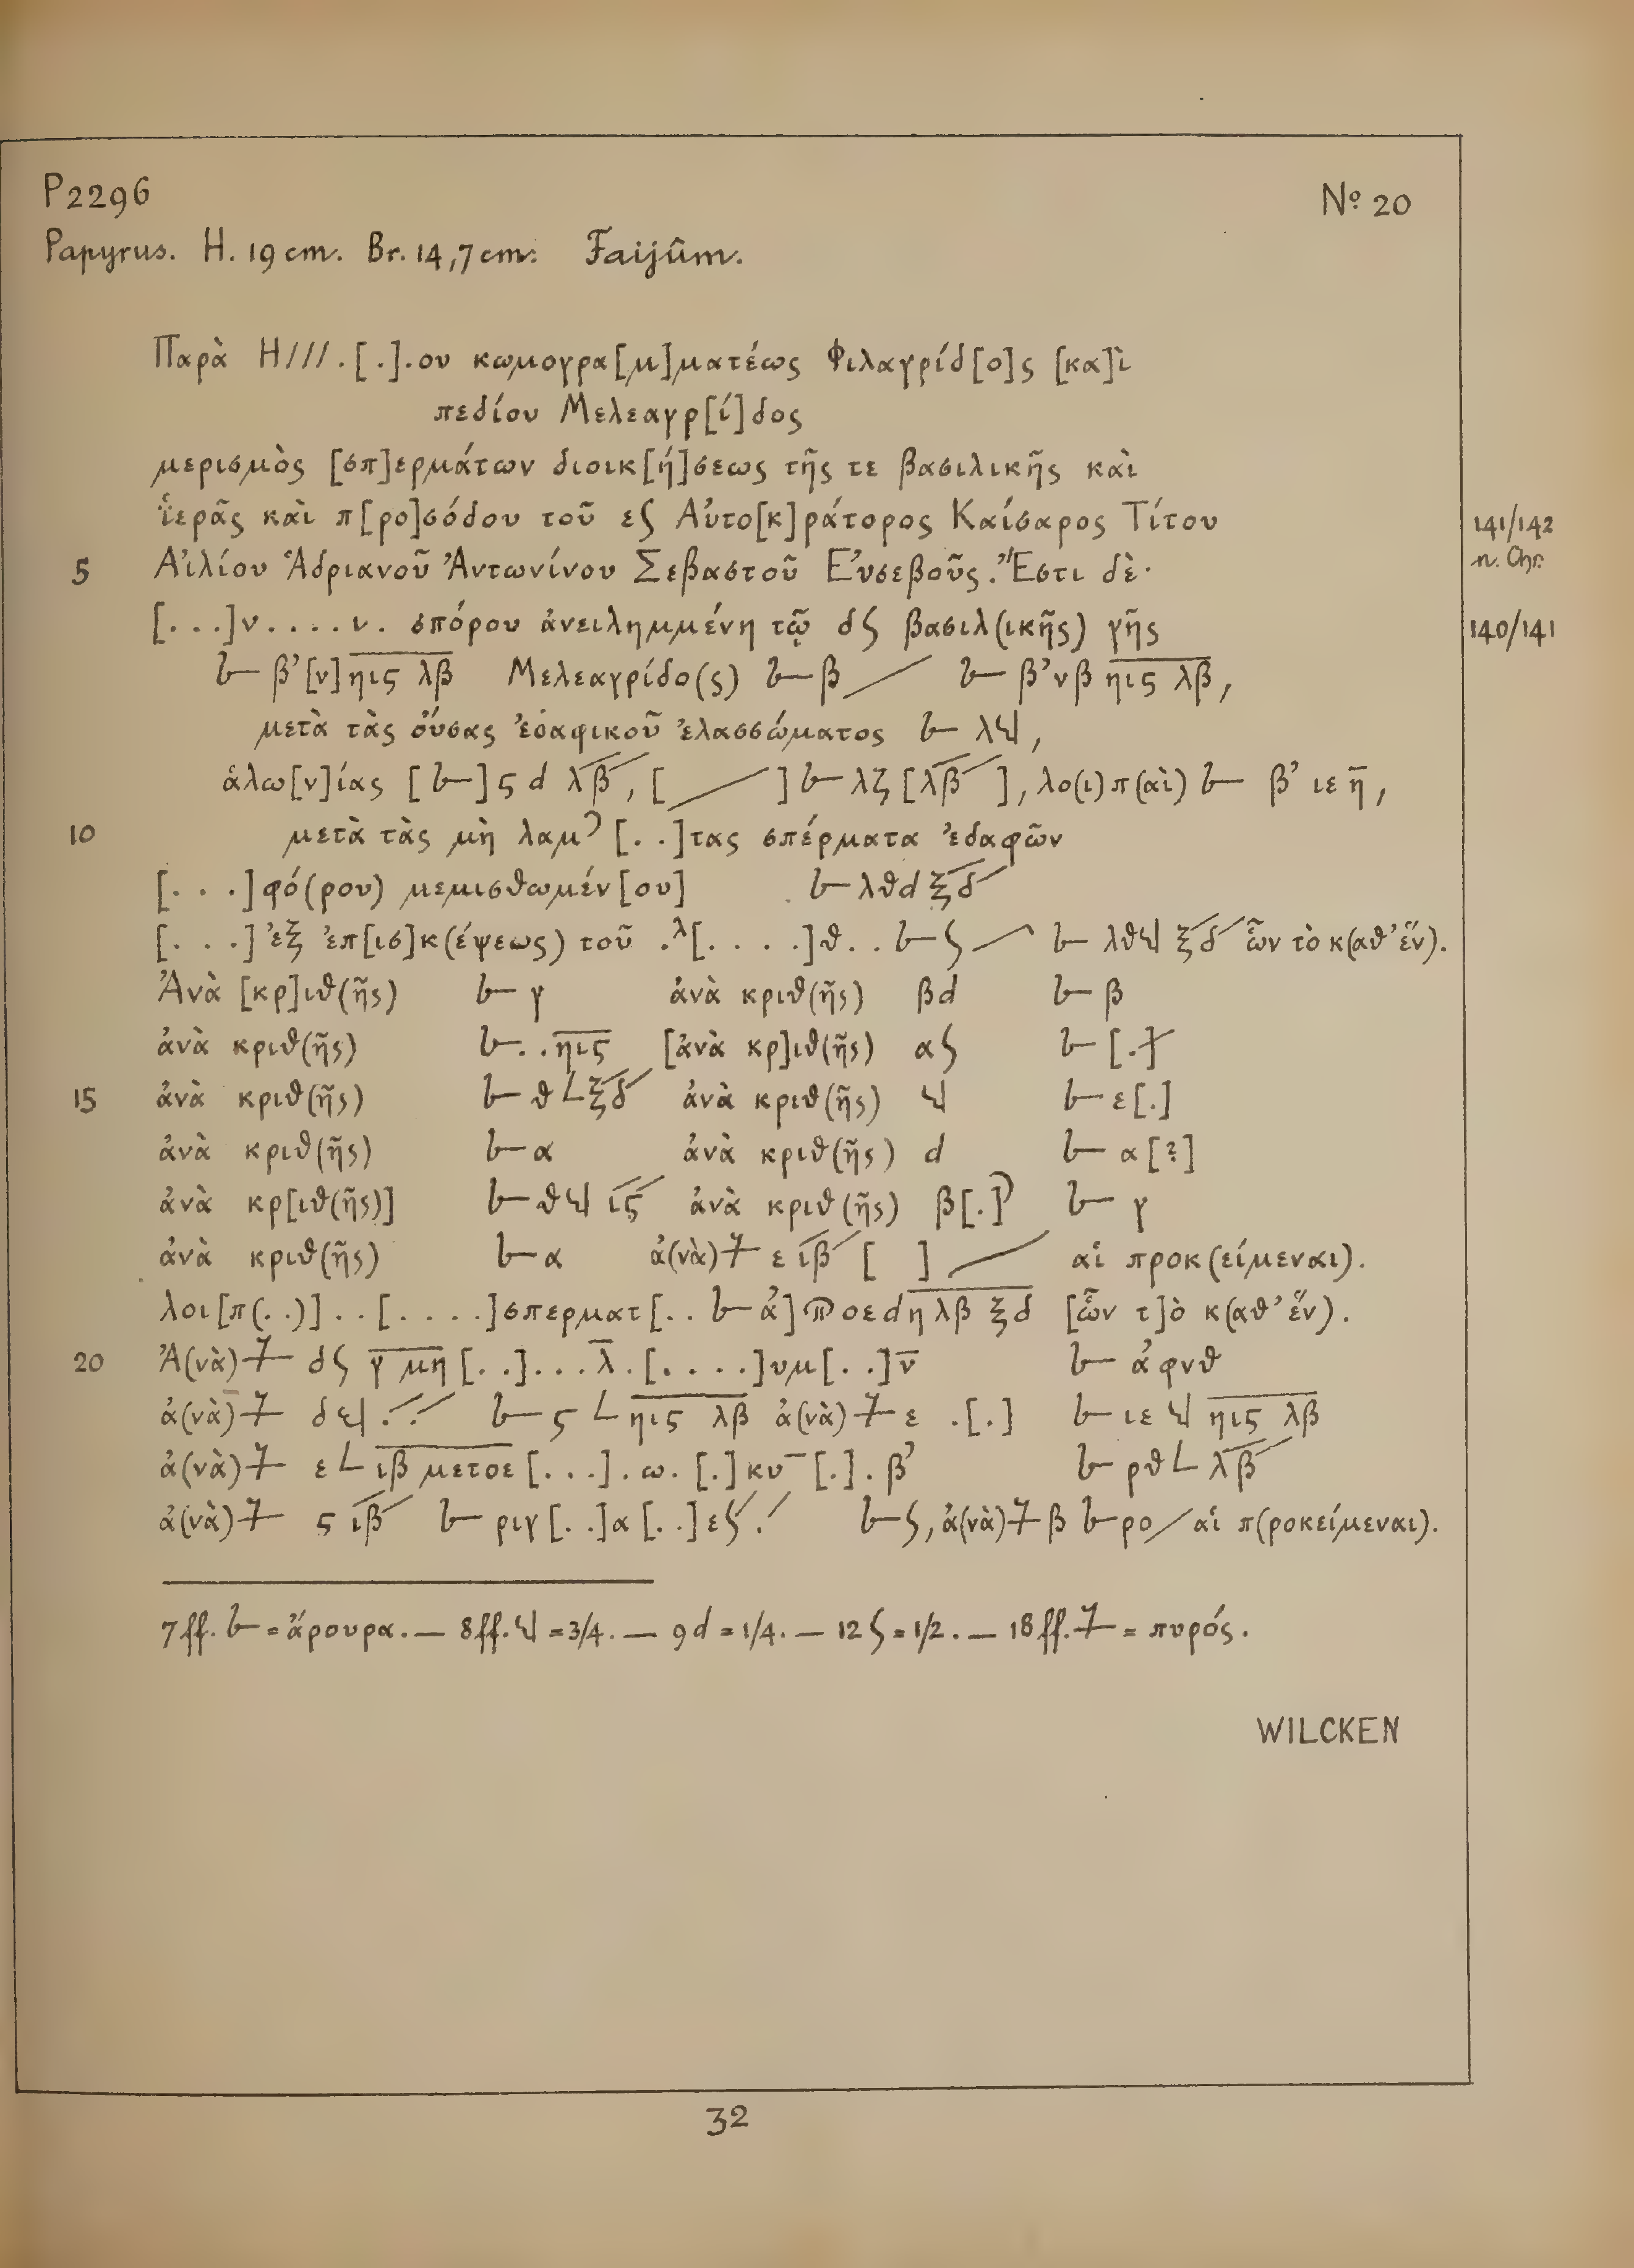 P2296
Nº 20
Papyrus. H. 19 cm. Br. 14,7 cm. Faijûm.
Παρὰ Η///.[.].ου κωμογρα[μ]ματέως Φιλαγρίδ[ο]ς [κα]ὶ
πεδίου Μελεαγρ[ί]δος
μερισμὸς [σπ]ερμάτων διοικ[ή]σεως τῆς τε βασιλικῆς καὶ
ϊερᾶς καὶ π[ρο]σόδου τοῦ εϚ Αὐτο[κ]ράτορος Καίσαρος Τίτου
141/142
n. Chr.
5 Αἰλίου Ἁδριανοῦ Ἀντωνίνου Σεβαστοῦ Εὐσεβοῦς. Ἔστι δὲ·
[...]ν....ν. σπόρου ἀνειλημμένη τῷ δϚ βασιλ(ικῆς) γῆς
140/141
β’[ν] ηις λβ Μελεαγρίδο(ς) β β’νβ ηις λβ,
μετὰ τὰς οὔσας ἐδαφικοῦ ἐλασσώματος λ,
ἁλω[ν]ίας [ ] ς d λβ, [ ] λζ [λβ], λο(ι)π(αὶ) β’ ιε η,
10 μετὰ τὰς μὴ λαμ [..]τας σπέρματα ἐδαφῶν
[...]φό(ρου) μεμισθωμέν[ου] λθd ξδ
[...] ἐξ ἐπ[ισ]κ(έψεως) τοῦ .λ[....]θ.. λθ ξδ ὧν τὸ κ(αθ’ ἕν).
Ἀνὰ [κρ]ιθ(ῆς) γ ἀνὰ κριθ(ῆς) βd β
ἀνὰ κριθ(ῆς) ..ηις [ἀνὰ κρ]ιθ(ῆς) α [.]
15 ἀνὰ κριθ(ῆς) θ ξδ ἀνὰ κριθ(ῆς) ε[.]
ἀνὰ κριθ(ῆς) α ἀνὰ κριθ(ῆς) d α[?]
ἀνὰ κρ[ιθ(ῆς)] θ ις ἀνὰ κριθ(ῆς) β[.] γ
ἀνὰ κριθ(ῆς) α ἀ(νὰ) ε ιβ [ ] αἱ προκ(είμεναι).
λοι[π(..)]..[....]σπερματ[.. ἀ] οεdη λβ ξδ [ὧν τ]ὸ κ(αθ’ ἕν).
20 Ἀ(νὰ) δ γ μη [..]...λ.[....]υμ[..]ν ἀφνθ
ἀ(νὰ) δ .. ς ηις λβ ἀ(νὰ) ε .[.] ιε ηις λβ
ἀ(νὰ) ε ιβ μετοε[...].ω.[.]κυ[.].β’ ρθ λβ
ἀ(νὰ) ς ιβ ριγ[..]α[..]ε. , ἀ(νὰ) β ρο αἱ π(ροκείμεναι).
7 ff. = ἄρουρα. — 8 ff. = 3/4. — 9 d = 1/4. — 12 = 1/2. — 18 ff. = πυρός.
WILCKEN
32